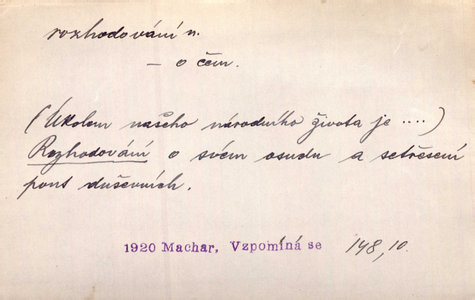 rozhodování n.
— o čem.
(Úkolem našeho národního života je ....)
Rozhodování o svém osudu a setřesení
pout duševních.
1920 Machar, Vzpomíná se 148, 10.